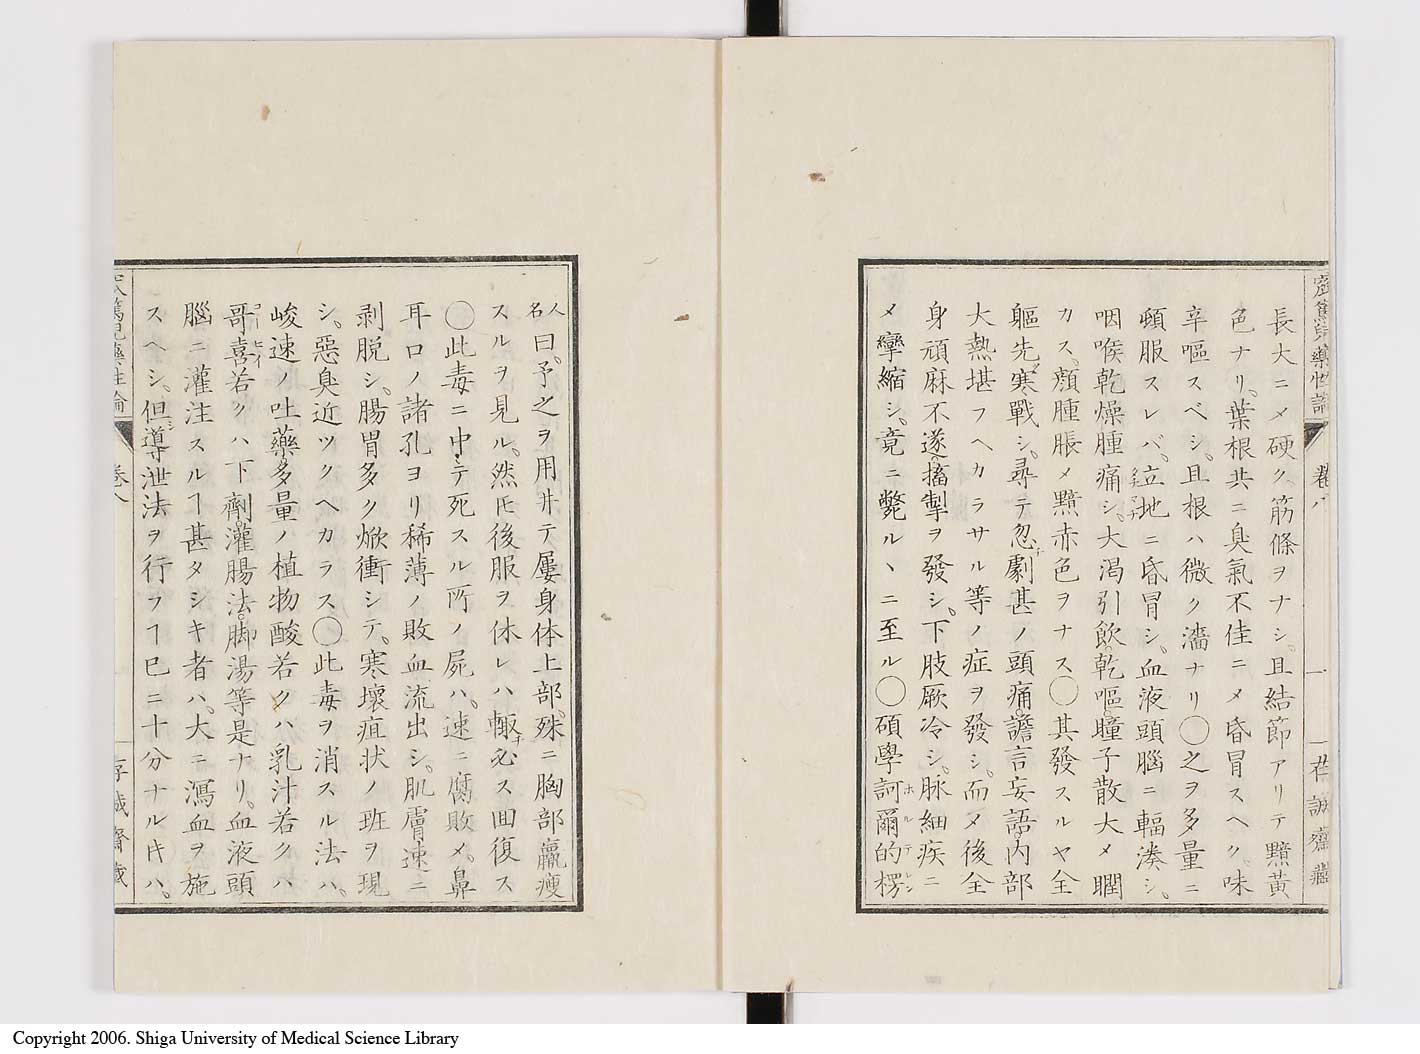 長大ニメ硬ク、筋條ヲナシ、且結節アリテ黯黃
色ナリ、葉根共ニ臭氣不佳ニメ昏冒スヘク、味
辛嘔スベシ、且根ハ微ク濇ナリ◯之ヲ多量ニ
頓服スレバ、立地ニ昏冒シ、血液頭腦ニ輻湊シ、
咽喉乾燥腫痛シ、大渇引飲、乾嘔、瞳子散大メ瞤
カス、顏腫脹メ黯赤色ヲナス◯其發スルヤ全
軀先ヅ寒戰シ、尋テ忽チ劇甚ノ頭痛、譫言妄語、内部
大熱堪フヘカラサル等ノ症ヲ發シ、而メ後全
身頑麻不遂、搐掣ヲ發シ、下肢厥冷シ、脉細疾ニ
メ攣縮シ、竟ニ斃ルヽニ至ル◯碩學訶爾的楞
ホルテレン
人名曰、予之ヲ用井テ屢身体上部、殊ニ胸部羸瘦
スルヲ見ル、然𪜈後服ヲ休レハ、輙チ必ス囬復ス
◯此毒ニ中テ死スル所ノ屍ハ、速ニ腐敗メ、鼻
耳口ノ諸孔ヨリ稀薄ノ敗血流出シ、肌膚速ニ
剥脱シ、腸胃多ク焮衝シテ、寒壞疽状ノ班ヲ現
シ、惡臭近ツクヘカラス◯此毒ヲ消スル法ハ、
峻速ノ吐藥、多量ノ植物酸若クハ乳汁若クハ
哥喜若クハ下劑、灌腸法、脚湯等是ナリ、血液頭
コーヒイ
腦ニ灌注スルヿ甚タシキ者ハ、大ニ瀉血ヲ施
スヘシ、但シ導泄法ヲ行フヿ已ニ十分ナル𪜈ハ、
卷八
存誠齋藏
Copyright 2006. Shiga University of Medical Science Library